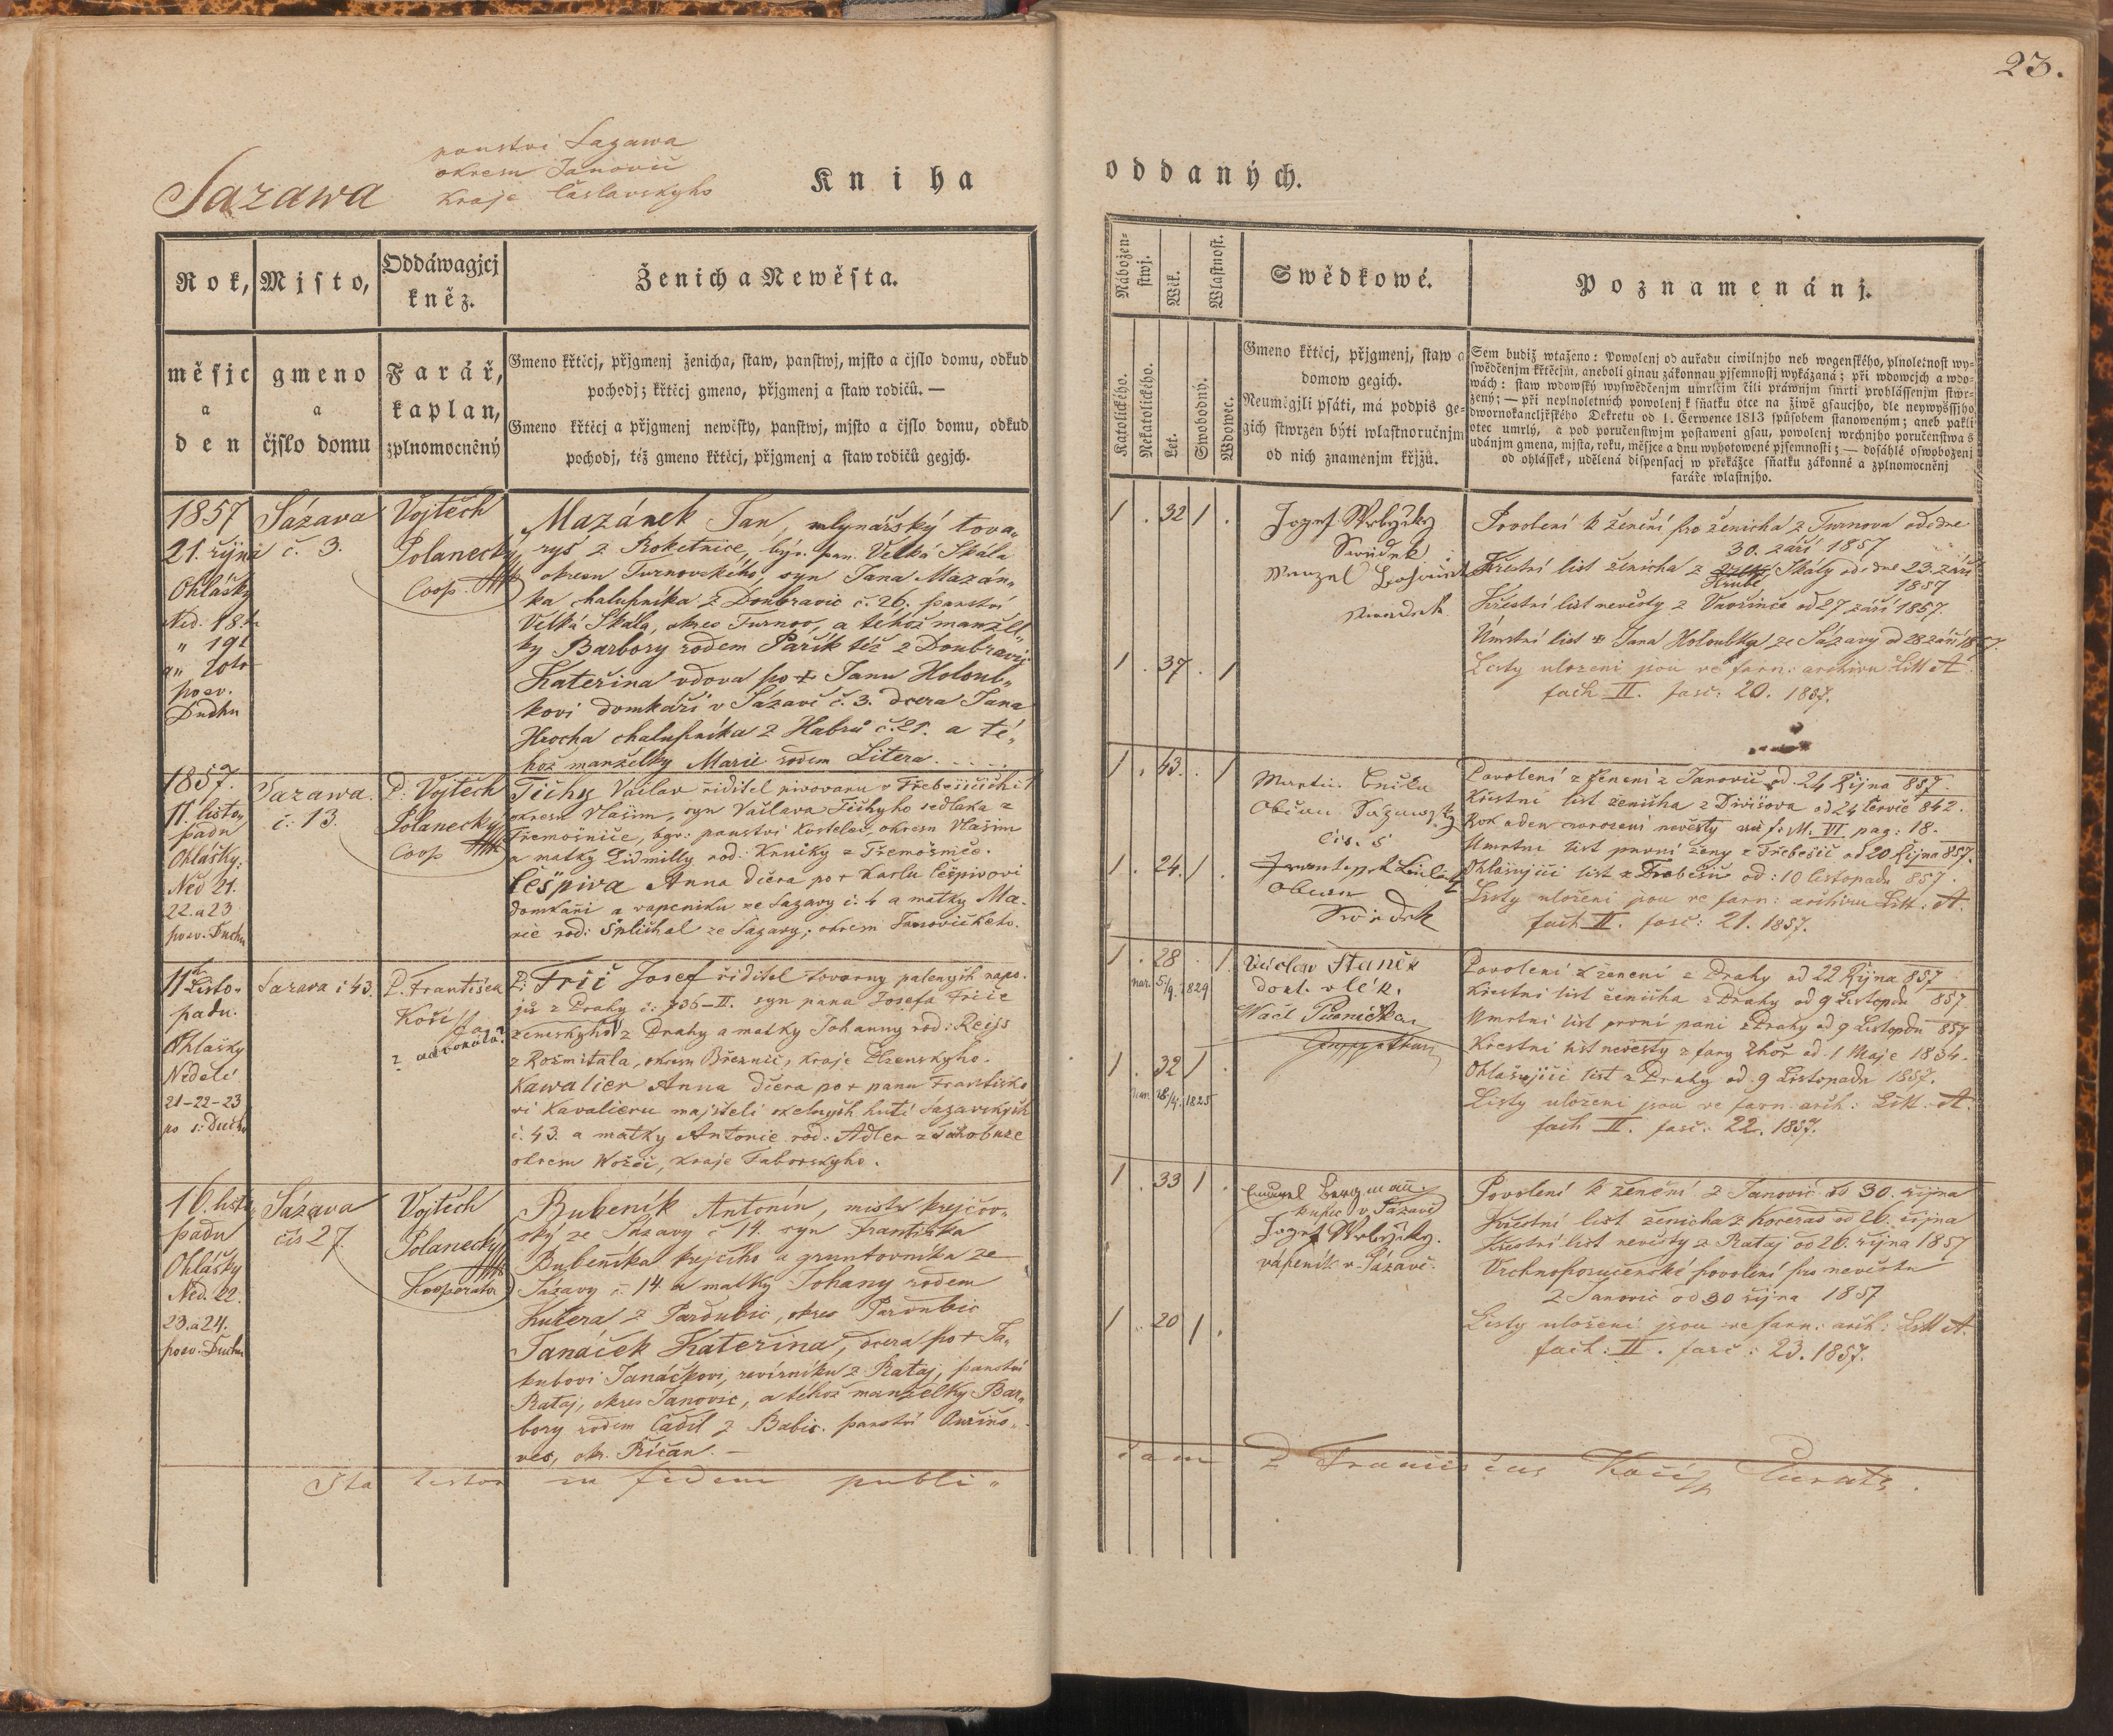 23.
panství Sazawa
okresu Janovič
Kraje Čáslavskyho
Sazawa
Kniha oddaných.
Rok, měsjc a den
Mjsto, gmeno a čjslo domu
Oddáwagjcj kněz. Farář, kaplan, zplnomocněný
Ženich a Newěsta.
Gmeno křtěcj, přjgmenj ženicha, staw, panstwj, mjsto a čjslo domu, odkud
pochodj; křtěcj gmeno, přjgmenj a staw rodičů. —
Gmeno křtěcj a přjgmenj newěsty, panstwj, mjsto a čjslo domu, odkud
pochodj, též gmeno křtěcj, přjgmenj a staw rodičů gegjch.
Nábožen-
stwj.
Katolického.
Nekatolického.
Wěk.
Let.
Wlastnost.
Swobodný.
Wdowec.
Swědkowé.
Gmeno křtěcj, přjgmenj, staw a
domow gegich.
Neuměgjli psáti, má podpis ge-
gich stwrzen býti wlastnoručnjm
od nich znamenjm křjžů.
Poznamenánj.
Sem budiž wtaženo: Powolenj od auřadu ciwilnjho neb wogenského, plnoletnost wy-
swědčenjm křtěcjm, aneboli ginau zákonnau pjsemnostj wykázaná; při wdowcjch a wdo-
wách: staw wdowský wyswědčenjm umrlčjm čili práwnjm smrti prohlássenjm stwr-
zený; — při neplnoletných powolenj k sňatku otce na žiwě gsaucjho, dle neywyššjho
dwornokancljřského Dekretu od 1. Čerwence 1813 spůsobem stanoweným; aneb pakli
otec umrlý, a pod poručenstwjm postaweni gsau, powolenj wrchnjho poručenstwa s
udánjm gmena, mjsta, roku, měsjce a dnu wyhotowené pjsemnosti; — dosáhlé oswobozenj
od ohlássek, udělená dispensacj w překážce sňatku zákonné a zplnomocněnj
faráře wlastnjho.
1857
21. řijna
Ohlášky
Ned. 18.
" 19t
a " 20to
po sv.
Duchu
Sázava
č. 3.
Vojtěch
Polanecký
Coop.
Mazánek Jan, mlynářský tova„
ryš z Roketnice, býv. pan. Velká Skála
okresu Turnovského, syn Jana Mazán„
ka chalupníka z Doubravic č. 26. panství
Velká Skála, okres Turnov, a téhož manžel„
ky Barbory rodem Pařík též z Doubravic
Kateřina vdova po + Janu Holoub„
kovi domkáři v Sázavě č. 3. dcera Jana
Hrocha chalupníka z Habrů č. 21. a té„
hož manželky Marie rodem Litera.
1 . 32 1 .
1 . 37 . 1
Jozef Wrbizky
Swědek
Wenzel
Povolení k ženění pro ženicha z Turnova ode dne
30. září 1857
Křestní list ženicha z Hrubé Skály ode dne 23. září
1857
Křestní list nevěsty z Vavřince od 27 září 1857.
Úmrtní list + Jana Holoubka ze Sázavy od 28 září 1857.
Listy uloženi jsou ve farn: archivu Litt A
fach II. fasc: 20. 1857.
1857.
11. listo„
padu
Ohlášky:
Ned 21.
22. a 23
po sv. Duchu
Sazawa.
č: 13.
P. Vojtěch
Polanecký
Coop
Tichy Václav řiditel pivovaru v Třebešičich č 1
okresu Vlašim, syn Václava Tichyho sedlaka z
Třemošniče, bgv: panstvi Kostelec, okresu Vlašim
a matky Lidmilly rod: Kručky z Třemošniče.
Češpiva Anna dčera po + Karlu Češpivovi
domkáři a vapeniku ze Sazavy č. 4 a matky Ma-
rie rod: Šplichal ze Sazavy, okresu Janovičkeho.
1 . 43. . 1
1 . 24. 1 .
Martin
Občan Sázawský
čis. 5
Občan
Swědek
Povolení z ženení z Janovič od 24 Řijna 857.
Křestni list ženicha z Divišova od 24 červče 842.
Rok a den narozeni nevěsty f: M. VI pag: 18.
Umrtni list prvni ženy z Třebešič od 20 Řijna 857.
Ohlašujiči list z Trebešic od: 10 listopadu 857.
Listy uloženi jsou ve farn: archivu Litt. A.
fach II. fasč: 21. 1857.
11t Listo„
padu.
Ohlašky
Neděli
21-22-23
po s: Duchu
Sazava č 43.
P. František
Koči
Frič Josef řiditel tovarny palenych napo-
jů z Prahy č: 736-II. syn pana Josefa Friče
zemskyho advokáta z Prahy a matky Johanny rod: Reiss
z Rožmitala, okresu Březnič, kraje Plzenskyho.
Kawalier Anna dčera po + panu Františko
vi Kavalieru majiteli sklenych hutí Sazavskych
č. 43. a matky Antonie rod: Adler z Jakobuze
okresu Wožič, kraje Taborskyho.
1 . 28 . 1
nar. 5/9. 1829
1 . 32 1 .
nar. 28/4. 1825
Václav Staněk
dokt. v lék.
Povolení z ženení z Prahy od 22 Řijna 857
Křestni list ženicha z Prahy od 9 Listopdu 857
Umrtni list první pani z Prahy od 9 Listopdu 857
Křestni list nevěsty z fary Zhoř od 1 Maje 1834.
Ohlašujiči list z Prahy od 9 Listopadu 1857.
Listy uloženi jsou ve farn. arch: Litt. A.
fach II. fasč: 22. 1857.
16. listo„
padu
Ohlášky
Ned. 22.
23. a 24.
po sv. Duchu
Sázava
čís 27.
Vojtěch
Polanecký
Kooperator
Bubeník Antonín, mistr krejčov„
ský ze Sázavy č 14. syn Františka
Bubeníka krejčího a gruntovníka ze
Sázavy č. 14. a matky Johany rodem
Kučera z Pardubic, okres Pardubic
Janáček Kateřina, dcera po + Ja„
kubovi Janáčkovi, revírníku z Rataj, panství
Rataj, okres Janovic, a téhož manželky Bar„
bory rodem Čadil z Babic. panství Ouřiňo„
ves, okr. Říčan. —
1 . 33 1 .
1 . 20 1 .
Emanuel Bergmann
kupec v Sázavě
Jozef Wrbizky.
vápeník v Sázavě.
Povolení k ženění z Janovic do 30. října
Křestní list ženicha z Kocerad od 26. října
Křestní list nevěsty z Rataj od 26. října 1857
Vrchnoporučenské povolení pro nevěstu
z Janovic od 30 října 1857
Listy uloženi jsou ve farn: arch: Litt A.
fach: II. fasč: 23. 1857.
Ita testor in fidem publi„
cam P Franciscus Koči Curatg.